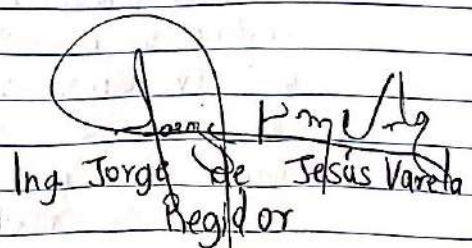 Ing Jorge de Jesús Varela
Regidor